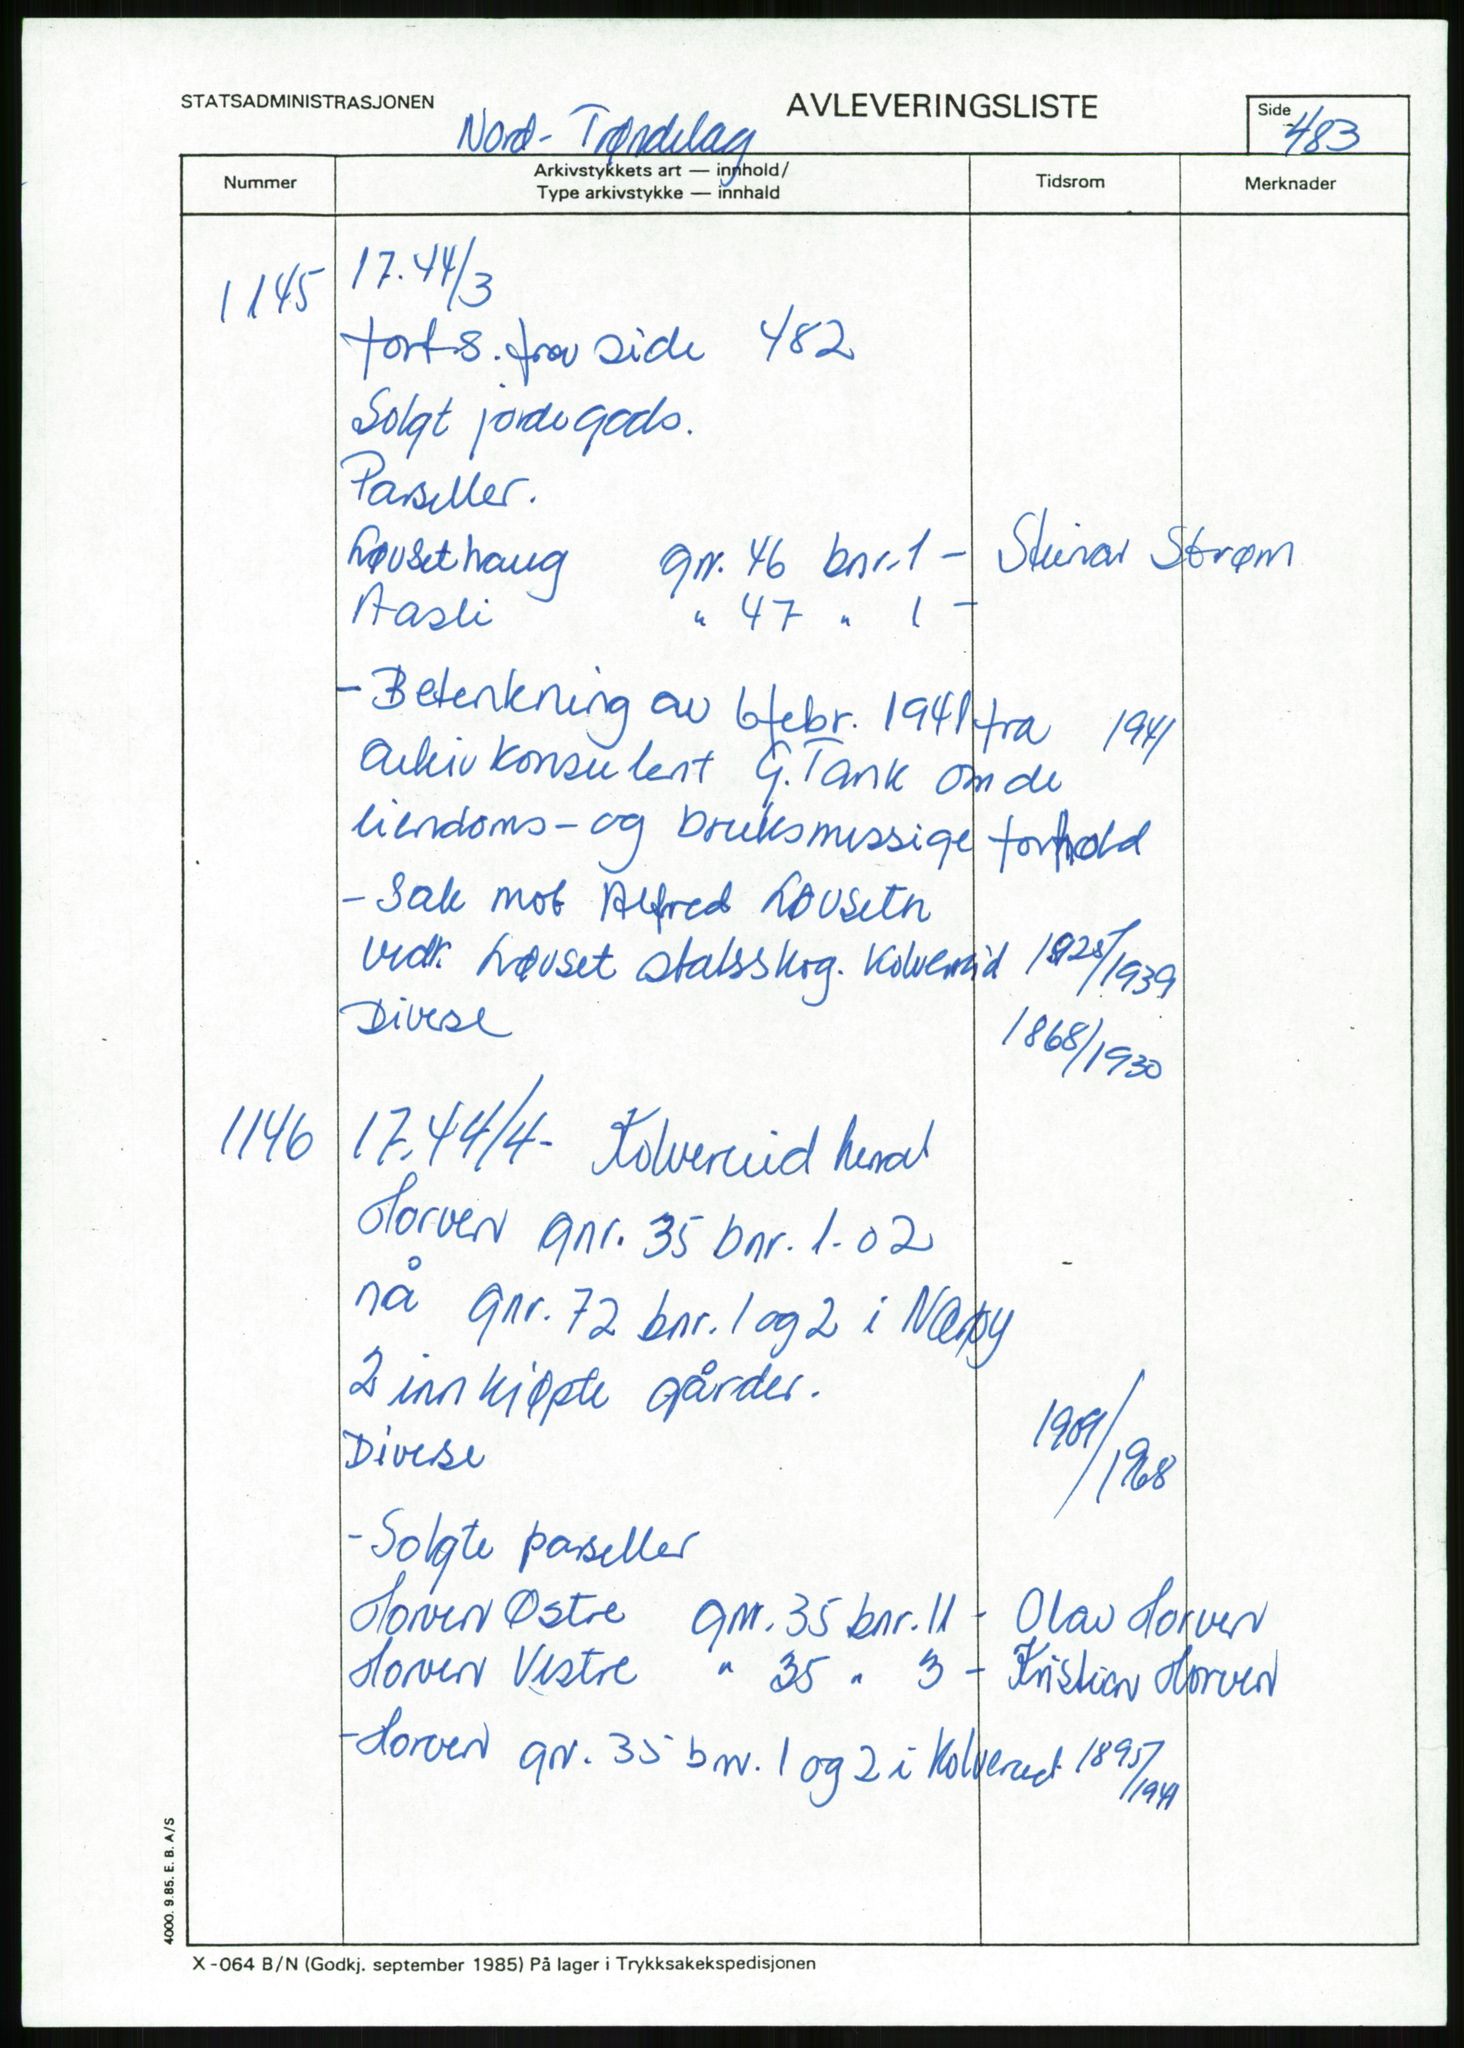 STATSADMINISTRASJONEN
AVLEVERINGSLISTE
Side 483
Nord-Trøndelag
Nummer
Arkivstykkets art — innhold/
Type arkivstykke — innhald
Tidsrom
Merknader
1145 17.44/3
forts. fra side 482
Solgt jordegods.
Parseller.
Løvsethaug gnr. 46 bnr. 1 - Steinar Strøm
Aasli " 47 " 1 -
- Betenkning av 6 febr. 1941 fra 1941
arkivkonsulent G. Tank om de
eiendoms- og bruksmessige forhold
- Sak mot Alfred Løvseth
vedr. Løvset statsskog. Kolvereid 1925/1939
Diverse 1868/1930
1146 17.44/4- Kolvereid herred
Horven gnr. 35 bnr. 1. o 2
nå gnr. 72 bnr. 1 og 2 i Nærøy
2 innkjøpte gårder.
Diverse 1909/1968
- Solgte parseller
Horven Østre gnr. 35 bnr. 11 - Olav Horven
Horven Vestre " 35 " 3 - Kristian Horven
- Horven gnr. 35 bnr. 1 og 2 i Kolvereid 1895/1941
4000. 9.85. E. B. A/S
X-064 B/N (Godkj. september 1985) På lager i Trykksakekspedisjonen